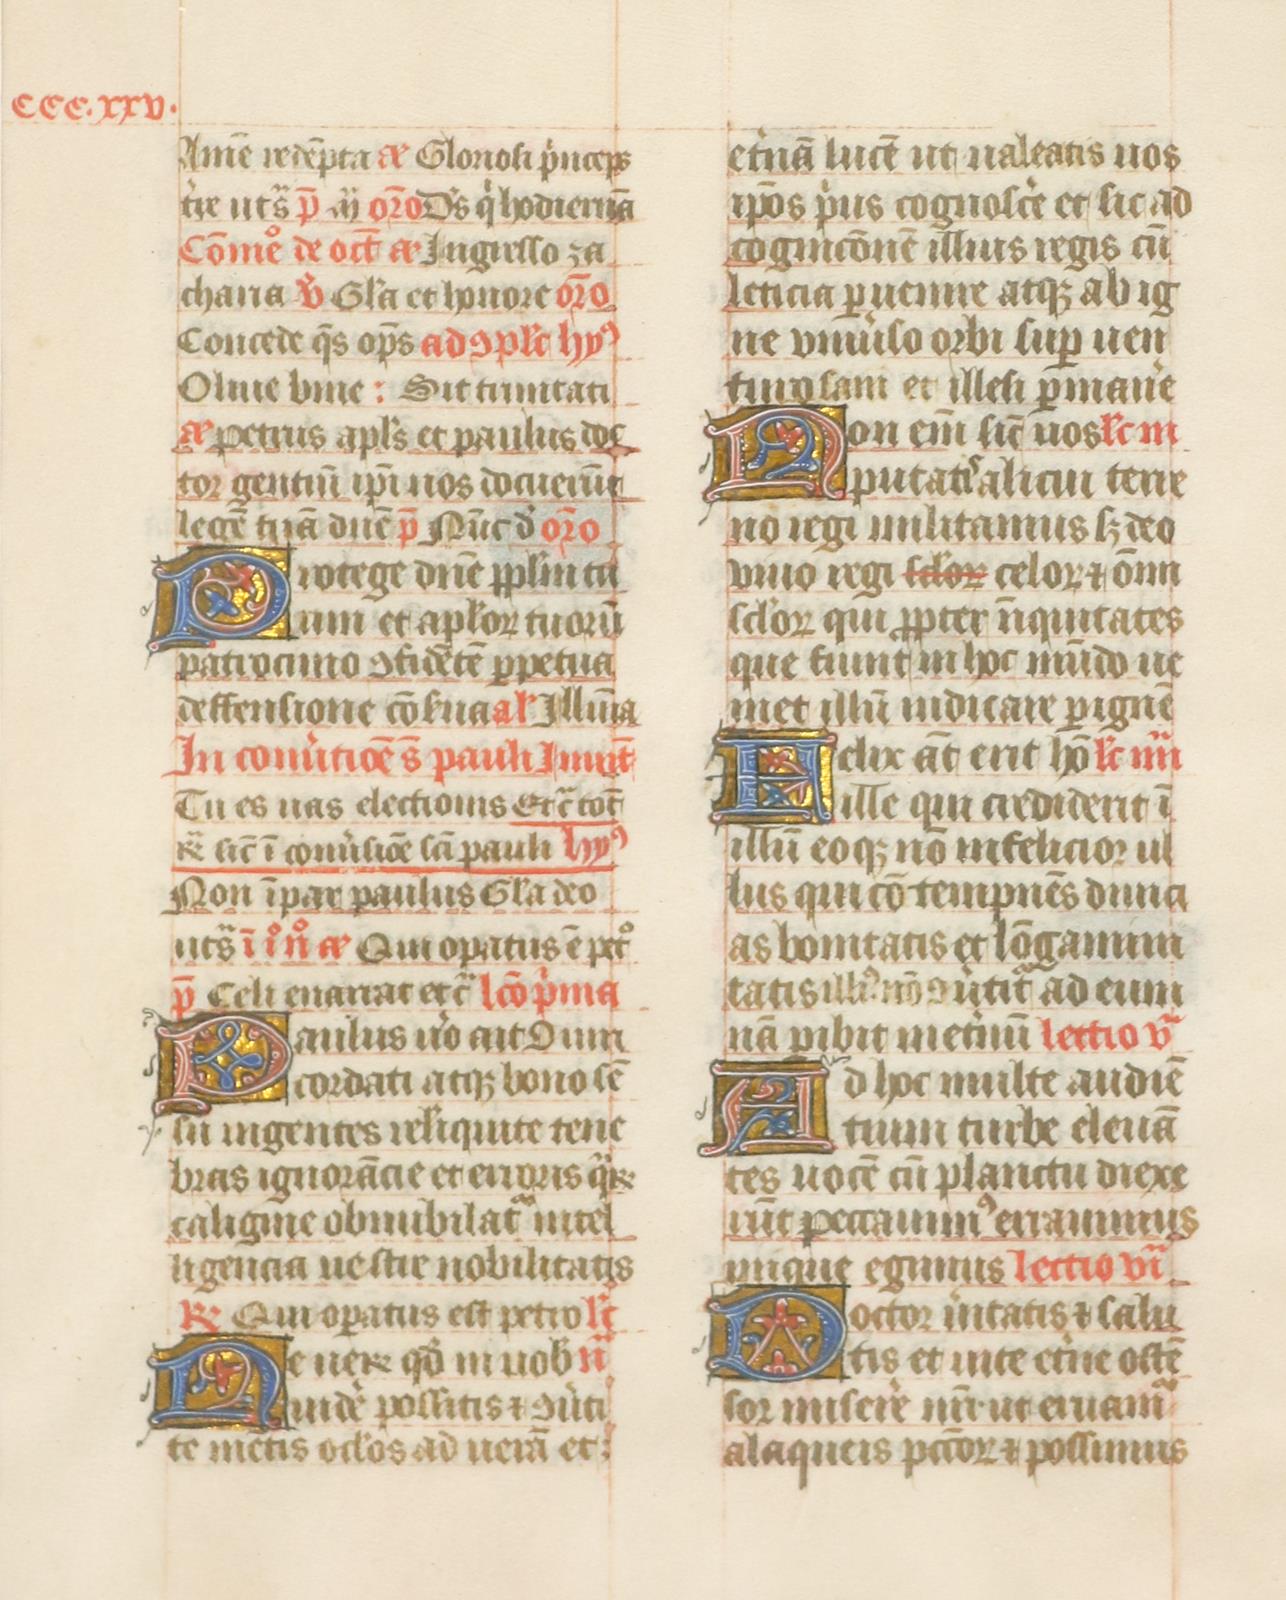 CCC.xxv.
Amē redēpta añ Gloriosi p̍nceps
t̍re utsͣ p̄ iij or̄o Ds̄ q̍ hodiernā
Cōmeº de oct̄ añ Ingresso za
charia v̄ Gl̄a et honore or̄o
Concede qs̄ op̄s ad ꝯpl̄e hyꝰ
Oliue bine : Sit trinitati
añ Petrus apl̄s et paulus doc
tor gentiū ip̄i nos docuerūt
legē tuā dn̄e p̄ Nūc d̍ or̄o
Protege dn̄e ppl̄m tu
um et apl̄oꝝ tuorū
patrocinio ꝯfidētē ꝑpetua
deffensione cōs̄ua al̄ Illūīa
In conūsiōe s̄ pauli Inuit̄
Tu es uas electionis Et cͣ tot̄
℟ sic̄ ī conūsiōe sc̄i pauli hyꝰ
Non īpar paulus Gl̄a deo
utsͣ ī iº nº añ Qui opatus ē petº
p̄ Celi enarrāt et cͣ lc̄o p̍ma
Paulus u̍o ait O uiri
cordati atqꝫ bono sē
su uigentes reliquite tene
bras ignorācie et erroris
caligine obnubilatͣ intel
ligencia uestre nobilitatis
℟ Qui opatus est petro lc̄
De uer̄ qd̄ in uob̄ ii
uidē possitis ⁊ ꝯūti
te mētis oc̄los ad uerā et
et̍nā lucē ut ualeatis uos
ip̄os p̍us cognosc̍e et sic ad
cognicōnē illius regis cū
leticia ꝑuenire atqꝫ ab ig
ne vniūso orbi suꝑ uen
turo sani et illesi ꝑmanē
Non eī sic̄ uos lc̄ iii
putatis alicui terre
no regi militamus sꝫ deo
viuo regi sc̄loꝝ celoꝝ ⁊ ōm
sc̄loꝝ qui ꝓpter īiquitates
que fiunt in hoc mūdo ue
niet illū iudicare ꝑ ignē
Felix aūt erit hō lc̄ iiii
ille qui crediderit ī
illū eoqꝫ nō infelicior ul
lus qui cōtempnēs diuici
as bonitatis et lōgamini
tatis illiꝰ nō ꝯūtitͣ ad eum
nā pibit in et̍nū lectio v
Ad hoc multe audiē
tium turbe eleuā
tes uocē cū planctu dixe
rūt Peccauimꝰ errauimus
inique egimus lectio vi
Doctor u̍itatis ⁊ salu
tis et uite et̍ne ostē
sor miser̍e nr̄i ut eruamͬ
a laqueis pc̄toꝝ ⁊ possimus